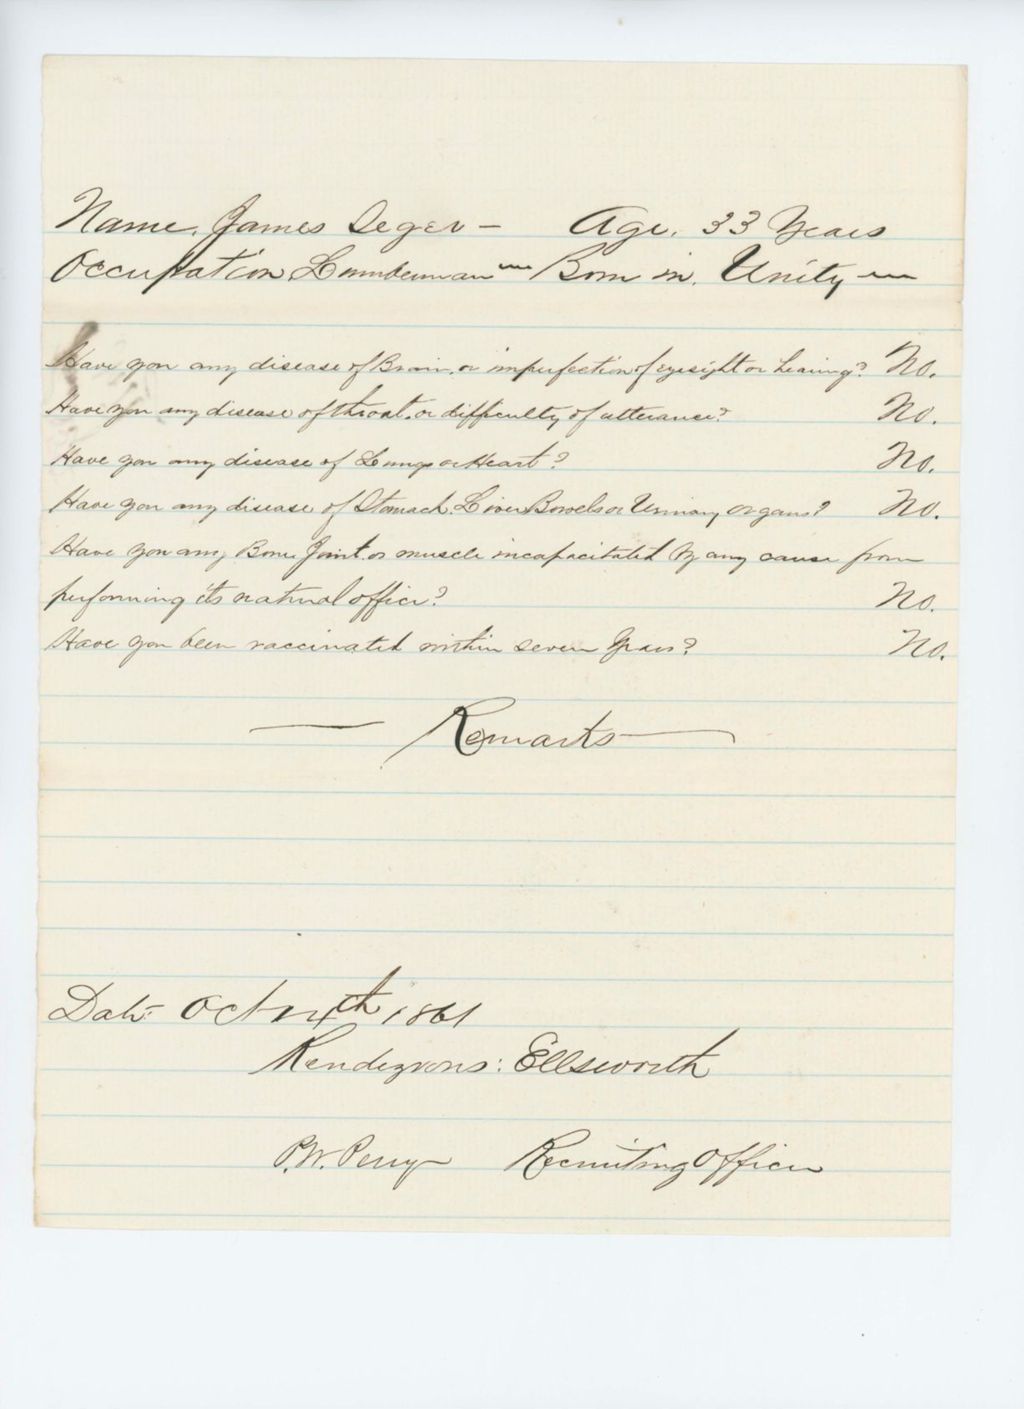 Name, James Seger – Age. 33 Years
Occupation Lumberman – Born in. Unity –
Have you any disease of Brain. or imperfection of eyesight or hearing? No.
Have you any disease of throat. or difficulty of utterance? No.
Have you any disease of Lungs or Heart? No.
Have you any disease of Stomach. Liver Bowels or Urinary organs? No.
Have you any Bone Joint. or muscle incapacitated by any cause from
performing its natural office? No.
Have you been vaccinated within seven Years? No.
— Remarks —
Date- Oct 14th 1861
Rendezvous: Ellsworth
P.W. Perry Recruiting Officer